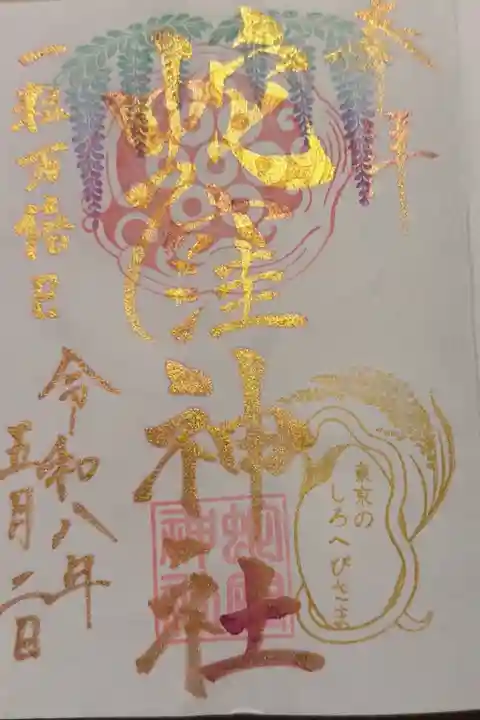 奉拝
蛇窪神社
蛇窪神社
東京の
しろへびさま
一粒万倍日
令和八年
五月二日